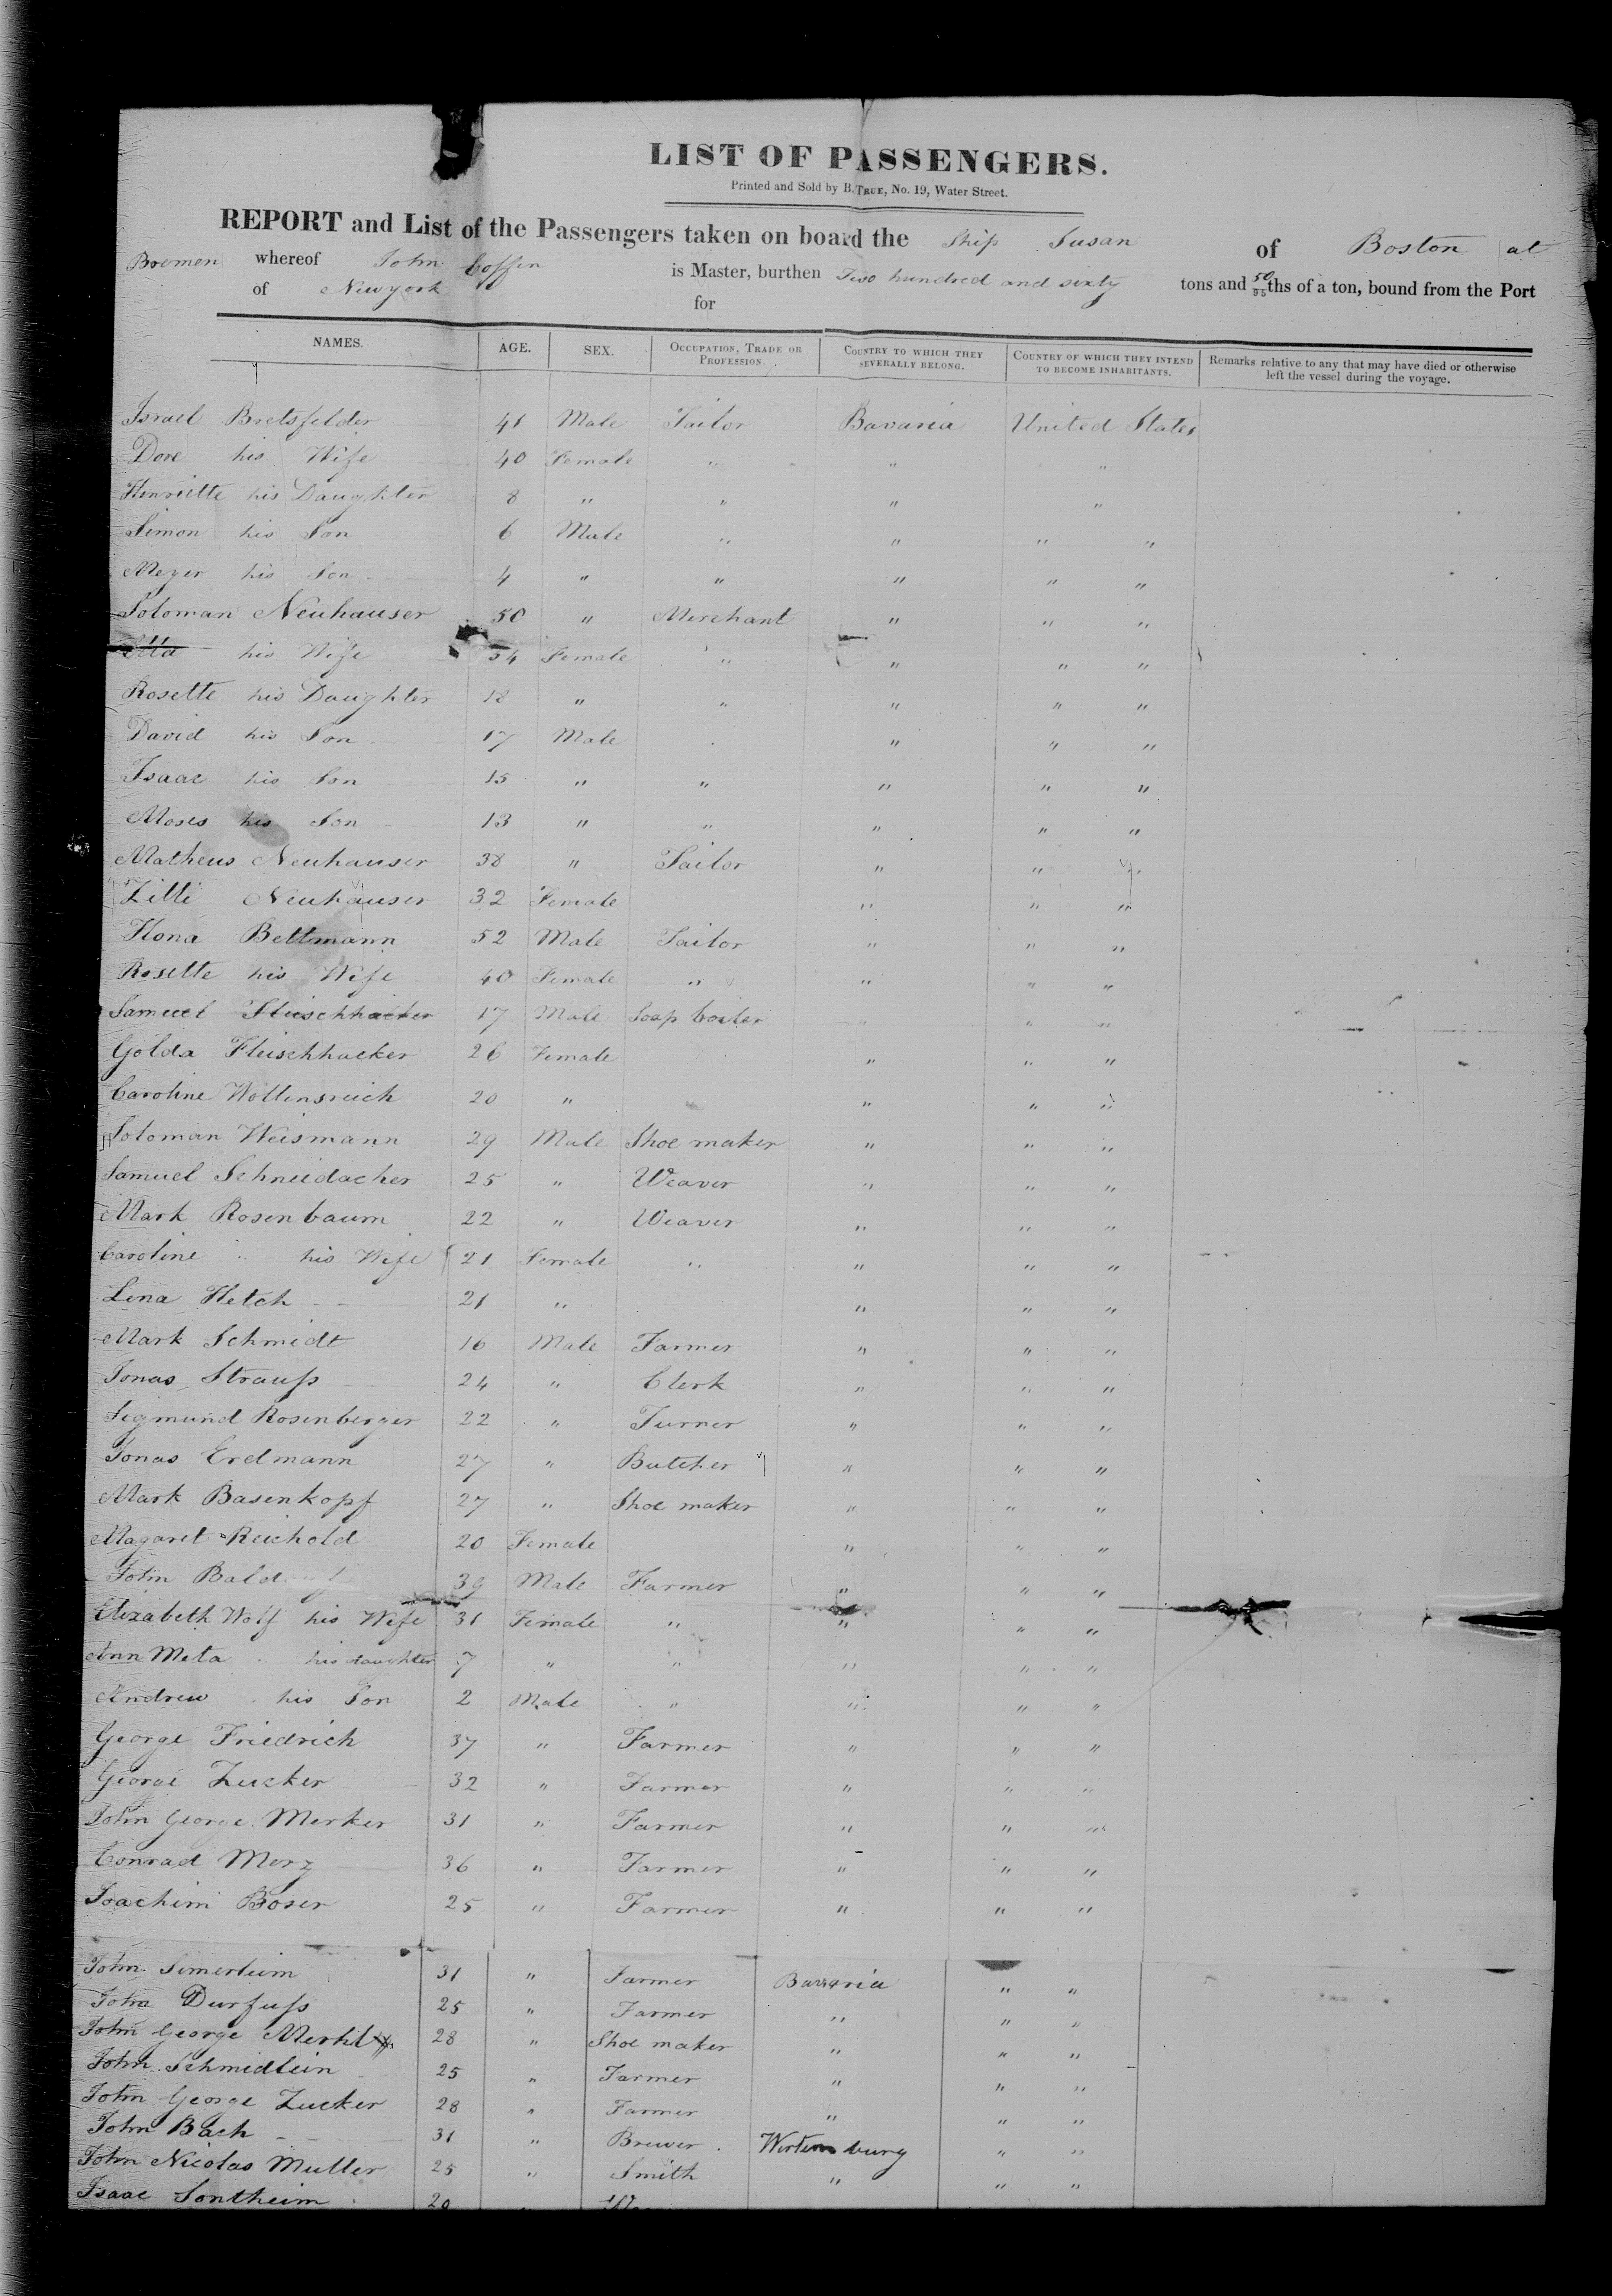 LIST OF PASSENGERS.
Printed and Sold by B. TRUE, No. 19, Water Street.
REPORT and List of the Passengers taken on board the Ship Susan of Boston at
Bremen whereof John Coffin is Master, burthen Two hundred and sixty tons and 50/95ths of a ton, bound from the Port
of Newyork for
NAMES. AGE. SEX. OCCUPATION, TRADE OR PROFESSION. COUNTRY TO WHICH THEY SEVERALLY BELONG. COUNTRY OF WHICH THEY INTEND TO BECOME INHABITANTS. Remarks relative to any that may have died or otherwise left the vessel during the voyage.
Israel Bretsfelder 41 Male Tailor Bavaria United States
Dore his Wife 40 Female " " "
Henriette his Daughter 8 " " " "
Simon his Son 6 Male " " " "
Meyer his Son 4 " " " " "
Soloman Neuhauser 50 " Merchant " " "
Etta his Wife 54 Female " " " "
Rosette his Daughter 18 " " " " "
David his Son 17 Male " " "
Isaac his Son 15 " " " " "
Moses his Son 13 " " " " "
Matheus Neuhauser 38 " Tailor " " "
Zilli Neuhauser 32 Female " " "
Hona Bettmann 52 Male Tailor " " "
Rosette his Wife 40 Female " " " "
Samuel Fleischhacker 17 Male Soap boiler " " "
Golda Fleischhacker 26 Female " " "
Caroline Wollensreich 20 " " " "
Soloman Weismann 29 Male Shoe maker " " "
Samuel Schneidacher 25 " Weaver " " "
Mark Rosenbaum 22 " Weaver " " "
Caroline " his Wife 21 Female " " " "
Lena Hetch 21 " " " "
Mark Schmidt 16 Male Farmer " " "
Jonas Strauss 24 " Clerk " " "
Segmund Rosenberger 22 " Turner " " "
Jonas Erdmann 27 " Butcher " " "
Mark Basenkopf 27 " Shoe maker " " "
Magaret Reichold 20 Female " " "
John 39 Male Farmer " " "
Elizabeth Wolf his Wife 31 Female " " " "
Ann Meta his daughter 7 " " " " "
Andrew his Son 2 Male " " " "
George Friedrich 37 " Farmer " " "
George Zucker 32 " Farmer " " "
John George Merker 31 " Farmer " " "
Conrad Merz 36 " Farmer " " "
Joachim Boser 25 " Farmer " " "
John Simerleim 31 " Farmer Bavaria " "
John Durfuss 25 " Farmer " " "
John George Merkl 28 " Shoe maker " " "
John Schmidlein 25 " Farmer " " "
John George Zucker 28 " Farmer " " "
John Bach 31 " Brewer Wirtemburg " "
John Nicolas Muller 25 " Smith " " "
Isaac Sontheim 20